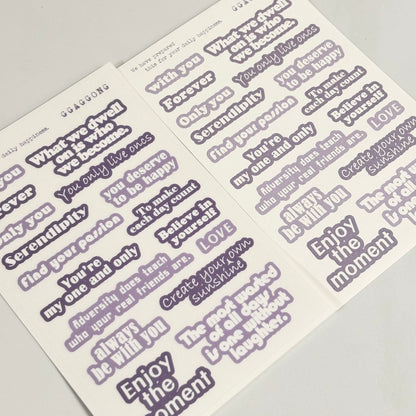 GGAGGONG
daily happiness.
What we dwell
on is who
we become.
You only live ones
Forever
you deserve
to be happy
Only you
To make
each day count
Serendipity
Believe in
yourself
find your passion
LOVE
You're
my one and only
Create your own
sunshine
Adversity does teach
who your real friends are.
The most wasted
of all days
is one without
laughter.
always
be with you
Enjoy
the
moment
We have prepared
this for your daily happiness.
GGAGGONG
What we dwell
on is who
we become.
with you
You only live ones
Forever
you deserve
to be happy
Only you
To make
each day count
Serendipity
Believe in
yourself
find your passion
LOVE
You're
my one and only
Create your own
sunshine
Adversity does teach
who your real friends are.
The most
of all
is one
always
be with you
Enjoy
the
moment